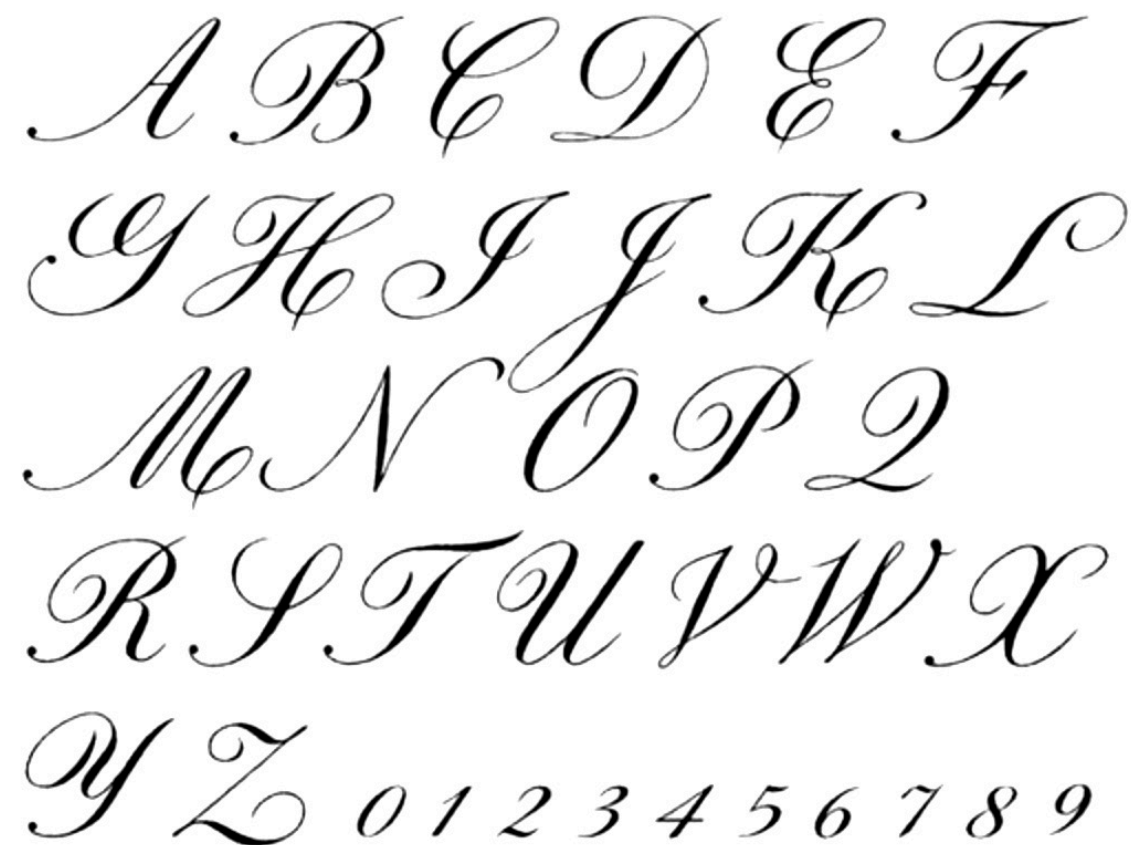 A B C D E F
G H I J K L
M N O P Q
R S T U V W X
Y Z 0 1 2 3 4 5 6 7 8 9